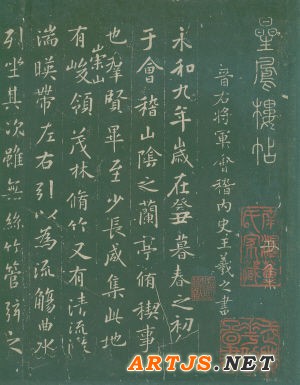 星鳳樓帖
晉右將軍會稽內史王羲之書
永和九年歲在癸丑暮春之初
于會稽山陰之蘭亭脩稧事
也羣賢畢至少長咸集此地
崇山
有峻領茂林脩竹又有清流激
湍暎帶左右引以為流觴曲水
列坐其次雖無絲竹管弦之
ARTJS.NET